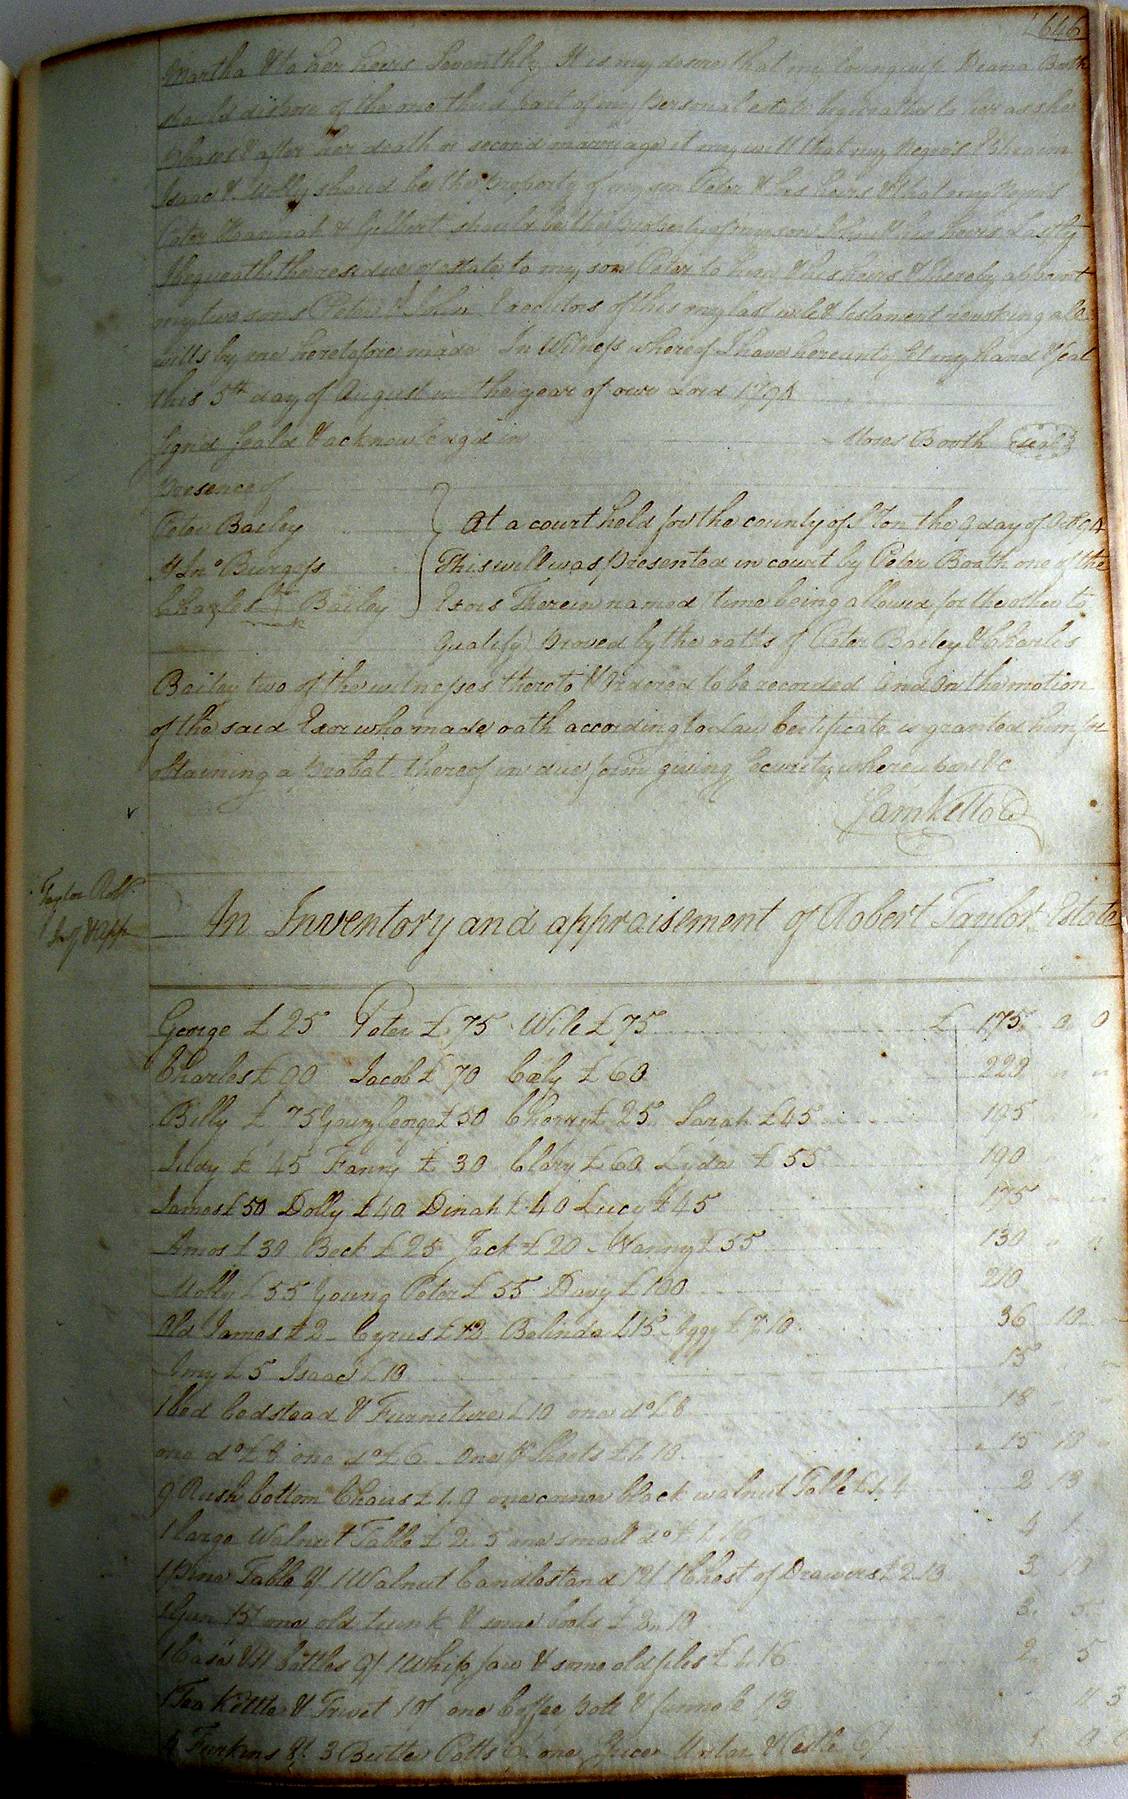 646
Martha & to her heirs Seventhly It is my desire that my loving wife Diana Booth
should dispose of the one third part of my personal estate bequeathed to her as she
pleases & after her death or second marriage it my will that my Negro's Ephraim
Isaac & Molly should be the property of my son Peter & his heirs & that my Negro's
Peter Hannah & Gilbert should be the property of my son John & his heirs Lastly
I bequeath the residue of estate to my son Peter to him & his heirs & hereby appoint
my two sons Peter & John Executors of this my last will & testament revoking all
wills by me heretofore made In Witness whereof I have hereunto set my hand & seal
this 5th day of August in the year of our Lord 1794
Sign'd Seal'd & acknowledg'd in Moses Booth seal
Presence of
Peter Bailey At a court held for the county of on the 9 day of Octr 94
Jno Burgess This will was presented in court by Peter Booth one of the
Charles Bailey Exors Therein named time being allowed for the other to
qualify proved by the oaths of Peter Bailey & Charles
Bailey two of the witnesses thereto & Ordered to be recorded And on the motion
of the said Exor who made oath according to Law Certificate is granted him for
obtaining a probat thereof in due form giving Security whereupon &c
Sam Kello
Taylor Robt
In Inventory and appraisement of Robert Taylor Estate
George £ 25 Peter £ 75 Will £ 75 £ 175 0 0
Charles £ 90 Jacob £ 70 £ 60
Billy £ 75 Young George £ 50 Cherry £ 25 Sarah £ 45 195
Judy £ 45 Fanny £ 30 Clary £ 60 Lydia £ 55 190
James £ 50 Dolly £ 40 Dinah £ 40 Lucy £ 45 175
Amos £ 30 Beck £ 25 Jack £ 20 Nanny £ 55 130
Molly £ 55 Young Peter £ 55 Davy £ 100 210
Old James £ 2 Cyrus £ 12 Belinda £ 15 Aggy £ 7 10 36 10
Amy £ 5 Isaac £ 10 15
1 Bed Bedstead & Furniture £ 10 one do £ 8 18
one do £ 8 one do £ 6 One Sheets £ 1 10 15 10
9 Rush bottom Chairs £ 1 9 one corner black walnut Table £ 1 4 2 13
1 large Walnut Table £ 2 5 one small do £ 1 16 4 1
1 pine Table 1 Walnut Candlestand 12/ 1 Chest of Drawers £ 2 10 3 10
1 Gun 15/ one old trunk & some books £ 2 10 3 5
1 Case & bottles 9/ 1 Whip saw & some old files £ 1 16 2 5
1 Tea Kettle & Trivet 10/ one Coffee pott & funnel 1/3 11 3
4 Firkins 3 Butter Potts one Spice Mortar & Pestle 6/